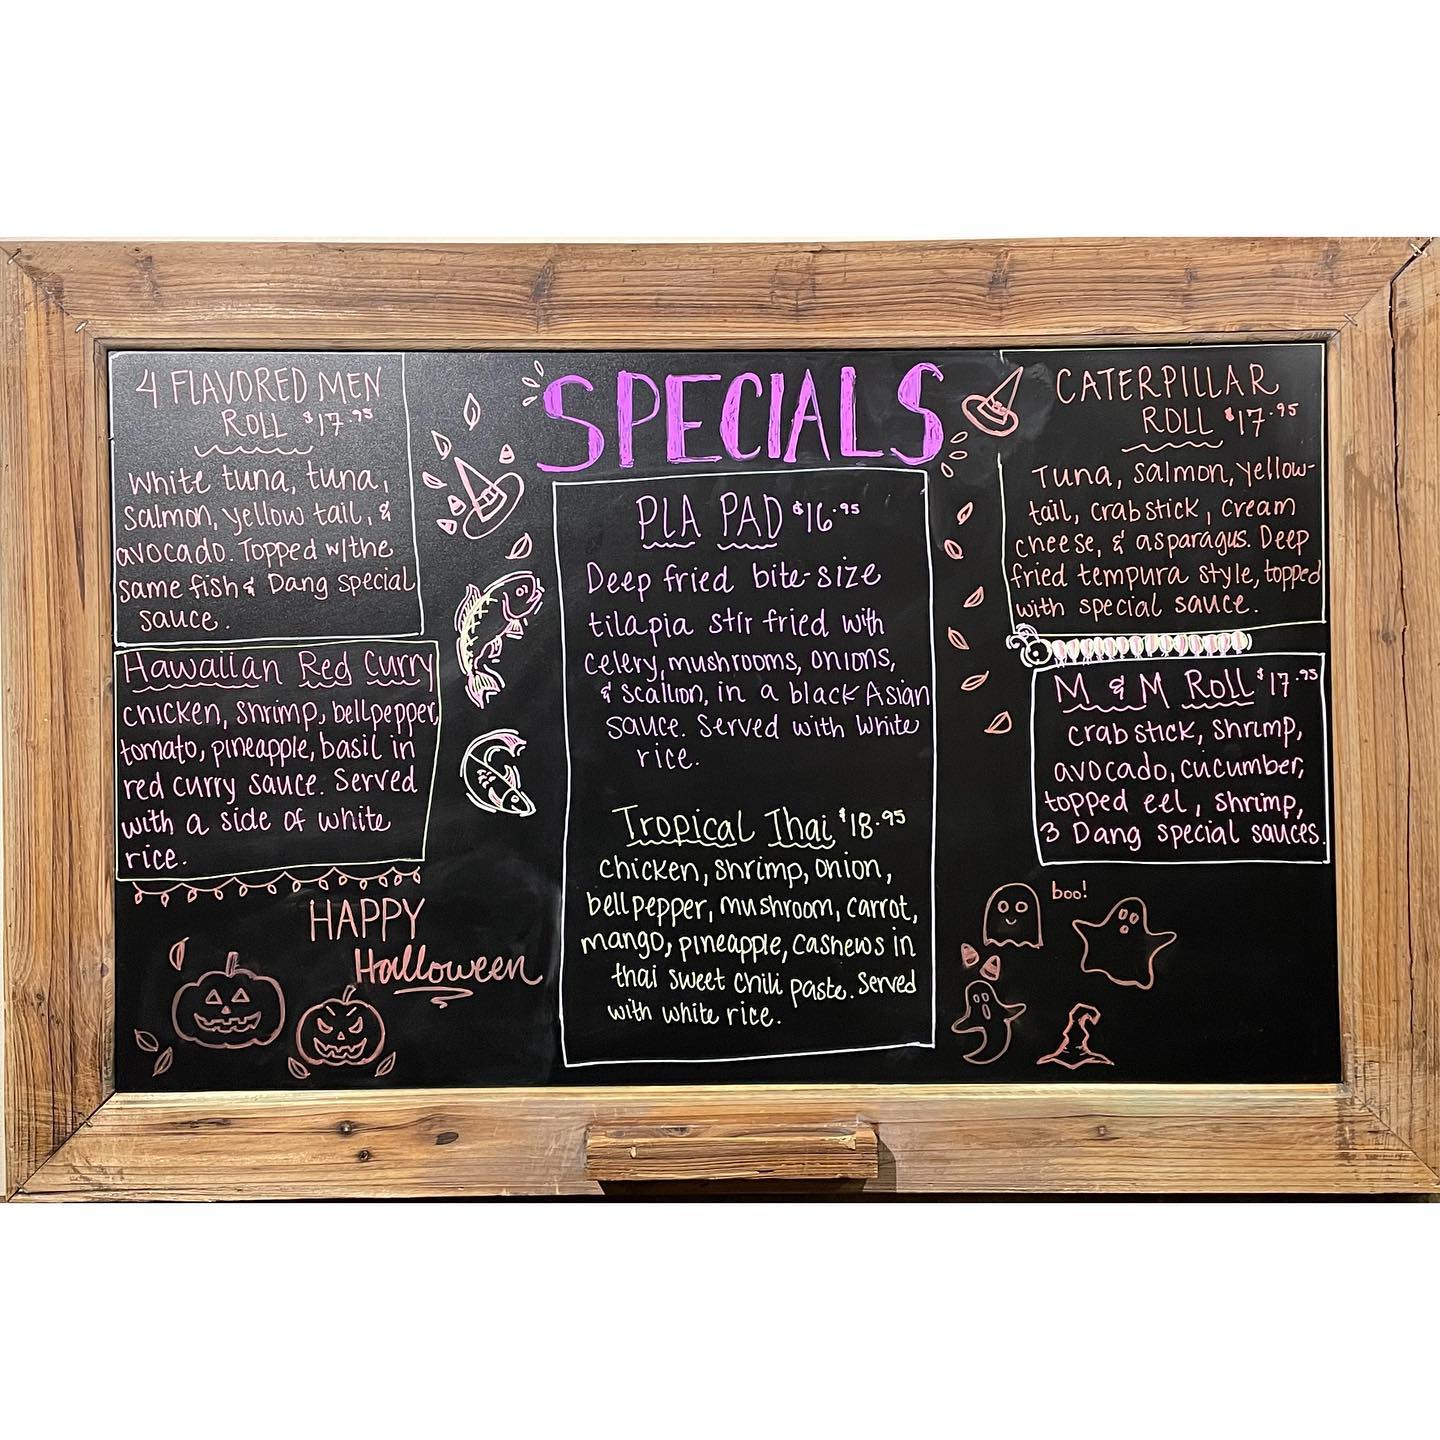 SPECIALS
4 FLAVORED MEN
ROLL $17.95
White tuna, tuna,
Salmon, yellow tail, &
avocado. Topped w/the
same fish & Dang special
sauce.
Hawaiian Red Curry
chicken, shrimp, bellpepper,
tomato, pineapple, basil in
red curry sauce. Served
with a side of white
rice.
HAPPY
Halloween
PLA PAD $16.95
Deep fried bite-size
tilapia stir fried with
celery, mushrooms, onions,
& scallion, in a black Asian
sauce. Served with white
rice.
Tropical Thai $18.95
chicken, shrimp, onion,
bellpepper, mushroom, carrot,
mango, pineapple, cashews in
thai sweet chili paste. Served
with white rice.
CATERPILLAR
ROLL $17.95
Tuna, salmon, yellow-
tail, crabstick, cream
cheese, & asparagus. Deep
fried tempura style, topped
with special sauce.
M & M Roll $17.95
crabstick, shrimp,
avocado, cucumber,
topped eel, shrimp,
3 Dang special sauces.
boo!